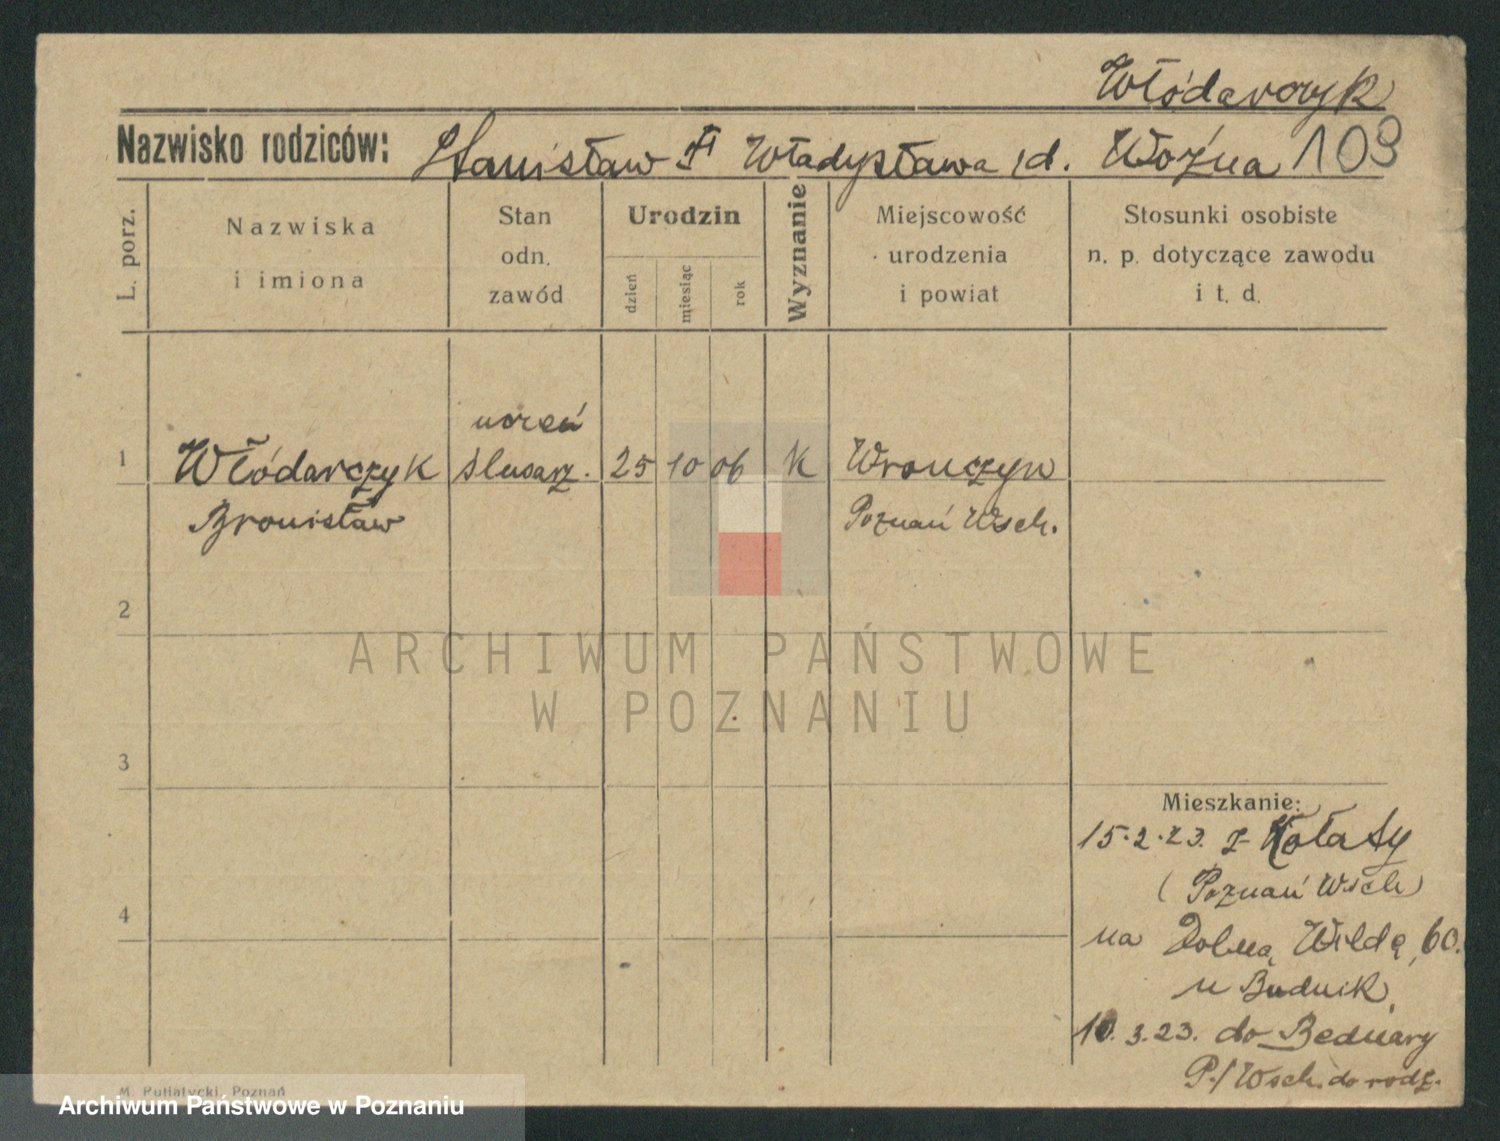 Włódarczyk
Nazwisko rodziców: Stanisław Władysława /d. Woźna 109
L. porz.
Nazwiska
i imiona
Stan
odn.
zawód
Urodzin
dzień
miesiąc
rok
Wyznanie
Miejscowość
urodzenia
i powiat
Stosunki osobiste
n. p. dotyczące zawodu
i t. d.
uczeń
1 Włódarczyk ślusarz. 25 10 06 K Wronczyn
Bronisław Poznań Wsch.
2
ARCHIWUM PAŃSTWOWE
W POZNANIU
3
Mieszkanie:
15.2.23. z Kołaty
(Poznań Wsch)
4
na Dolną Wildę, 60.
u Budnik,
10.3.23. do Bednary
P./Wsch. do rodz.
M. Putiatycki, Poznań
Archiwum Państwowe w Poznaniu